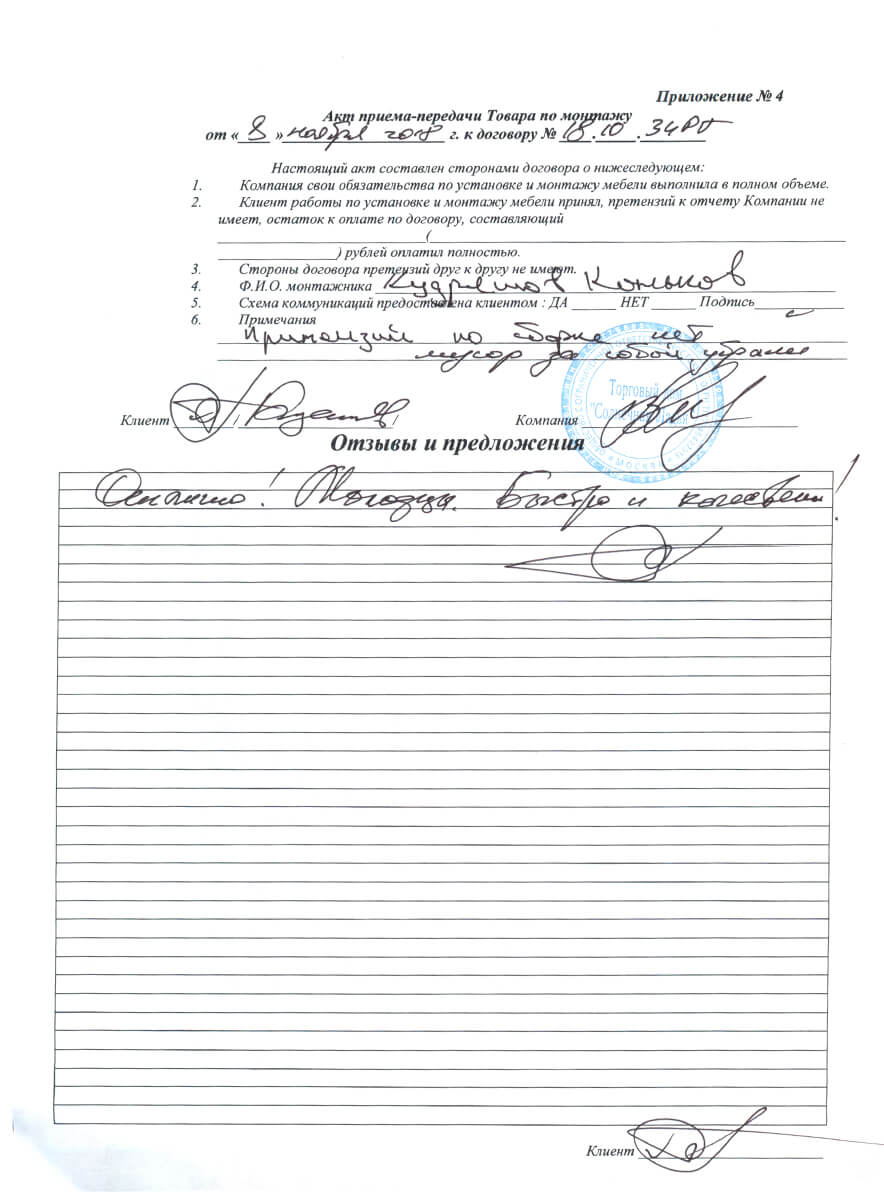 Приложение № 4
Акт приема-передачи Товара по монтажу
от « 8 » ноября 2018 г. к договору № 18.10.34
Настоящий акт составлен сторонами договора о нижеследующем:
1. Компания свои обязательства по установке и монтажу мебели выполнила в полном объеме.
2. Клиент работы по установке и монтажу мебели принял, претензий к отчету Компании не
имеет, остаток к оплате по договору, составляющий
(
) рублей оплатил полностью.
3. Стороны договора претензий друг к другу не имеют.
4. Ф.И.О. монтажника Кудряшов Коньков
5. Схема коммуникаций предоставлена клиентом : ДА ______ НЕТ ______ Подпись
6. Примечания
по сборке нет
мусор за собой убрали
Торговый дом
Клиент / /
Компания
МОСКВА
Отзывы и предложения
Отлично! Молодцы. Быстро и качественно!
Клиент